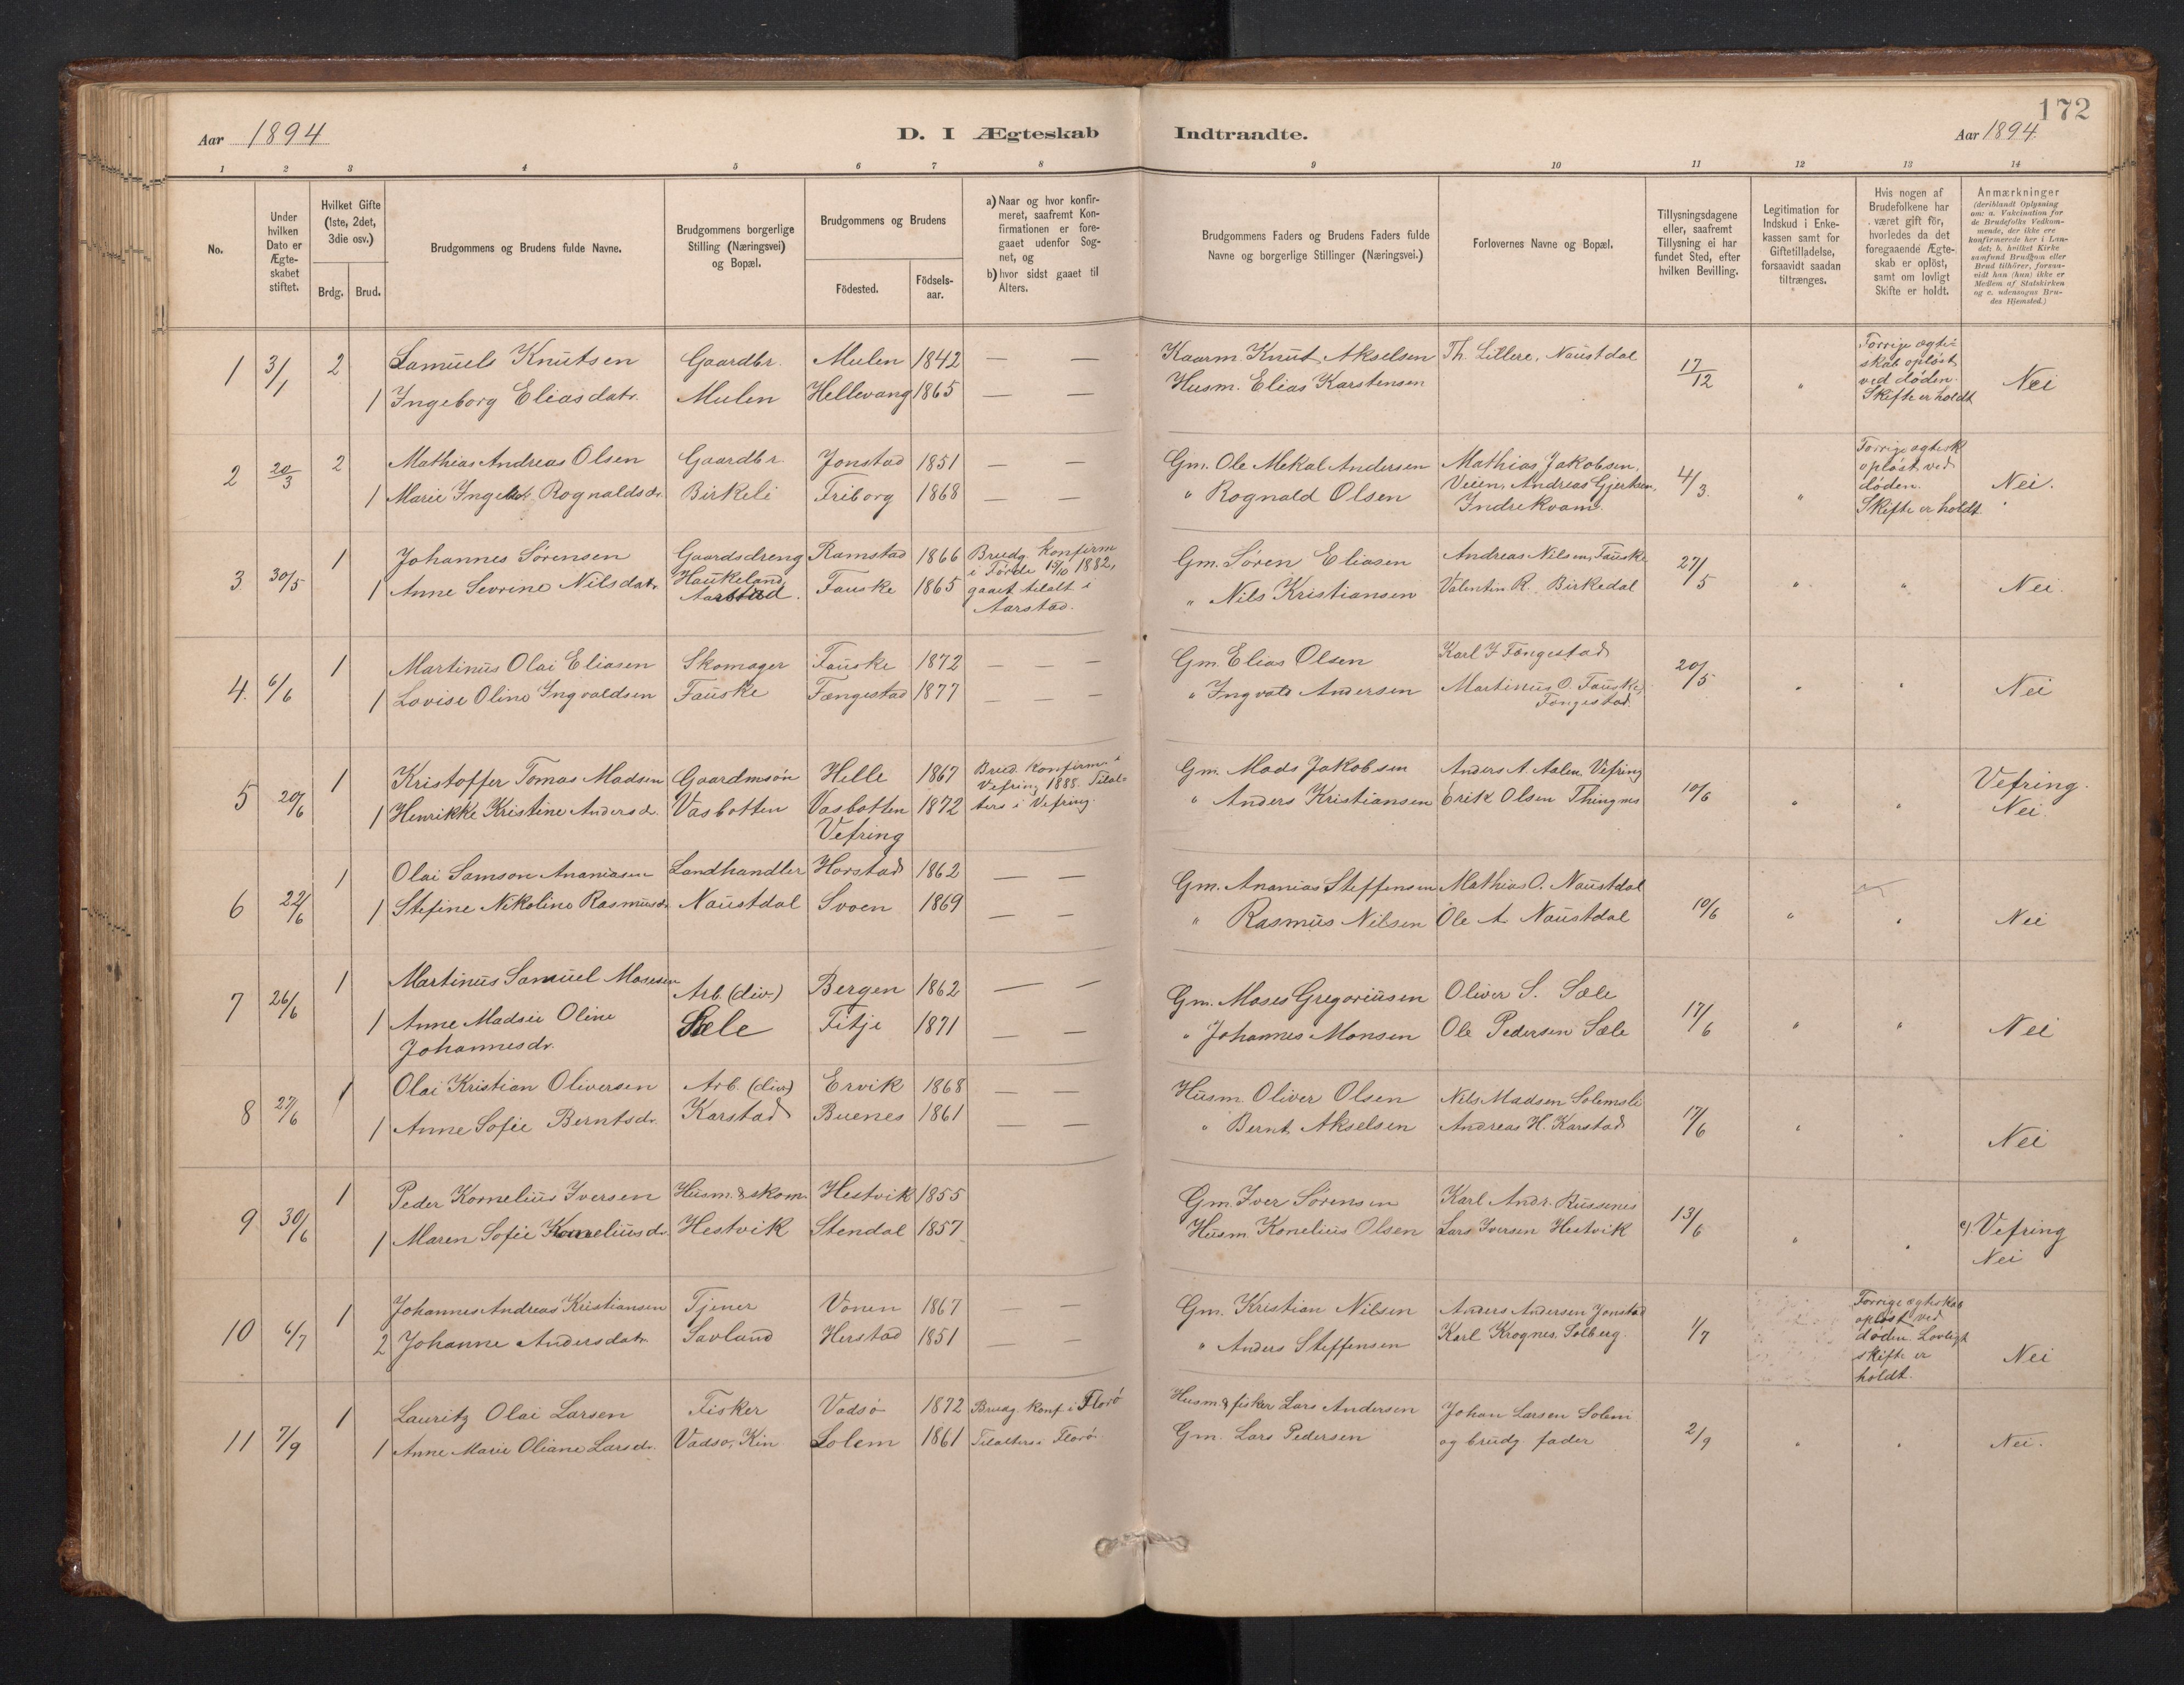 172
Aar 1894
D. I Ægteskab Indtraadte.
Aar 1894
1 2 3 4 5 6 7 8 9 10 11 12 13 14
No.
Under hvilken Dato er Ægteskabet stiftet.
Hvilket Gifte (1ste, 2det, 3die osv.)
Brdg. Brud.
Brudgommens og Brudens fulde Navne.
Brudgommens borgerlige Stilling (Næringsvei) og Bopæl.
Brudgommens og Brudens
Födested. Födselsaar.
a) Naar og hvor konfirmeret, saafremt Konfirmationen er foregaaet udenfor Sognet, og
b) hvor sidst gaaet til Alters.
Brudgommens Faders og Brudens Faders fulde Navne og borgerlige Stillinger (Næringsvei.)
Forlovernes Navne og Bopæl.
Tillysningsdagene eller, saafremt Tillysning ei har fundet Sted, efter hvilken Bevilling.
Legitimation for Indskud i Enkekassen samt for Giftetilladelse, forsaavidt saadan tiltrænges.
Hvis nogen af Brudefolkene har været gift för, hvorledes da det foregaaende Ægteskab er oplöst, samt om lovligt Skifte er holdt.
Anmærkninger
(deriblandt Oplysning om: a. Vakcination for de Brudefolks Vedkommende, der ikke ere konfirmerede her i Landet; b. hvilket Kirkesamfund Brudgom eller Brud tilhörer, forsaavidt han (hun) ikke er Medlem af Statskirken og c. udensogns Brudes Hjemsted.)
1 3/1 2 Samuels Knutsen Gaardbr. Mulen 1842 — — Kaarm. Knut Akselsen Th. Lillere, Naustdal 17/12 " Forrige ægteskab opløst ved døden. Skifte er holdt Nei
1 Ingeborg Eliasdatr. Mulen Hellevang 1865 — — Husm. Elias Karstensen
2 20/3 2 Mathias Andreas Olsen Gaardbr. Jonstad 1851 — — Gm. Ole Mekal Andersen Mathias Jakobsen, 4/3. " Forrige ægtesk opløst ved døden. Skifte er holdt Nei.
1 Marie Rognaldsdr. Birkeli Friborg 1868 — — " Rognald Olsen Veien, Andreas Gjertsen, Indrekvam.
3 30/5 1 Johannes Sørensen Gaardsdreng Ramstad 1866 Brudg. Konfirm i Førde 15/10 1882, gaaet tilalt i Aarstad. Gm. Søren Eliasen Andreas Nilsen, Fauske 27/5 " " Nei.
1 Anne Sevrine Nilsdatr. Haukeland Aarstad. Fauske 1865 " Nils Kristiansen Valentin R. Birkedal
4. 6/6 1 Martinus Olai Eliasen Skomager Fauske 1872 — — — Gm. Elias Olsen Karl J Fængestad 20/5 " " Nei
1 Lovise Oline Ingvaldsen Fauske Fængestad 1877 — — — " Ingvald Andersen Martinus O. Fauske, Fængestad.
5 20/6 1 Kristoffer Tomas Madsen Gaardmsøn Helle 1867 Brud. Konfirm. i Vefring 1888. Tilalters i Vefring. Gm. Mads Jakobsen Anders A. Aalen, Vefring 10/6 " " Vefring. Nei
1 Henrikke Kristine Andersdr. Vasbotten Vasbotten Vefring 1872 " Anders Kristiansen Erik Olsen Thingnes
6 22/6 1 Olai Samson Ananiasen Landhandler Horstad 1862 — — Gm. Ananias Steffensen Mathias O. Naustdal 10/6 " " Nei
1 Stefine Nikoline Rasmusdr. Naustdal Svoen 1869 — — " Rasmus Nilsen Ole A. Naustdal
7 26/6 1 Martinus Samuel Mosesen Arb. (div) Bergen 1862 — — Gm. Moses Gregoriusen Oliver S. Sæle 17/6 " " Nei
1 Anne Madsii Oline Johannesdr. Sæle Fitje 1871 — — " Johannes Monsen Ole Pedersen Sæle
8 27/6 1 Olai Kristian Oliversen Arb. (div) Ervik 1868 — — Husm. Oliver Olsen Nils Madsen Solemsli 17/6 " " Nei
1 Anne Sofie Berntsdr. Karstad Buenes 1861 — — " Bernt Akselsen Andreas H. Karstad
9 30/6 1 Peder Kornelius Iversen Husm. & skom. Hestvik 1855 Gm. Iver Sørensen Karl Andr. Russenes 13/6 " " c) Vefring Nei
1 Maren Sofie Korneliusdr. Hestvik Stendal 1857 Husm. Konelius Olsen Lars Iversen Hestvik
10 6/7 1 Johannes Andreas Kristiansen Tjener Vonen 1867 — — Gm. Kristian Nilsen Anders Andersen Jonstad 1/7 Forrige ægteskab opløst ved døden. Lovligt skifte er holdt. Nei
2 Johanne Andersdatr. Savland Herstad 1851 — — " Anders Steffensen Karl Krognes, Solberg.
11 7/9 1 Lauritz Olai Larsen Fisker Vadsø 1872 Brudg. Konf. i Florø Husm & fisker Lars Andersen Johan Larsen Solem 2/9 " " Nei.
1 Anne Marie Oliane Larsdr. Vadsø, Kin Solem 1861 Tilalters i Florø. Gm. Lars Pedersen og brudg. fader